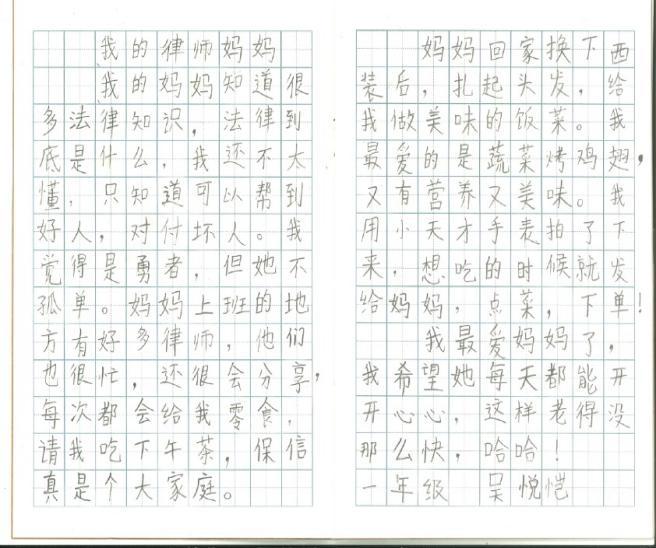 我的律师妈妈
我的妈妈知道很
多法律知识，法律到
底是什么，我还不太
懂，只知道可以帮到
好人，对付坏人。我
觉得是勇者，但她不
孤单。妈妈上班的地
方有好多律师，他们
也很忙，还很会分享，
每次都会给我零食，
请我吃下午茶，保信
真是个大家庭。
妈妈回家换下西
装后，扎起头发，给
我做美味的饭菜。我
最爱的是蔬菜烤鸡翅，
又有营养又美味。我
用小天才手表拍了下
来，想吃的时候就发
给妈妈，点菜，下单！
我最爱妈妈了，
我希望她每天都能开
开心心，这样老得没
那么快，哈哈！
一年级 吴悦恺